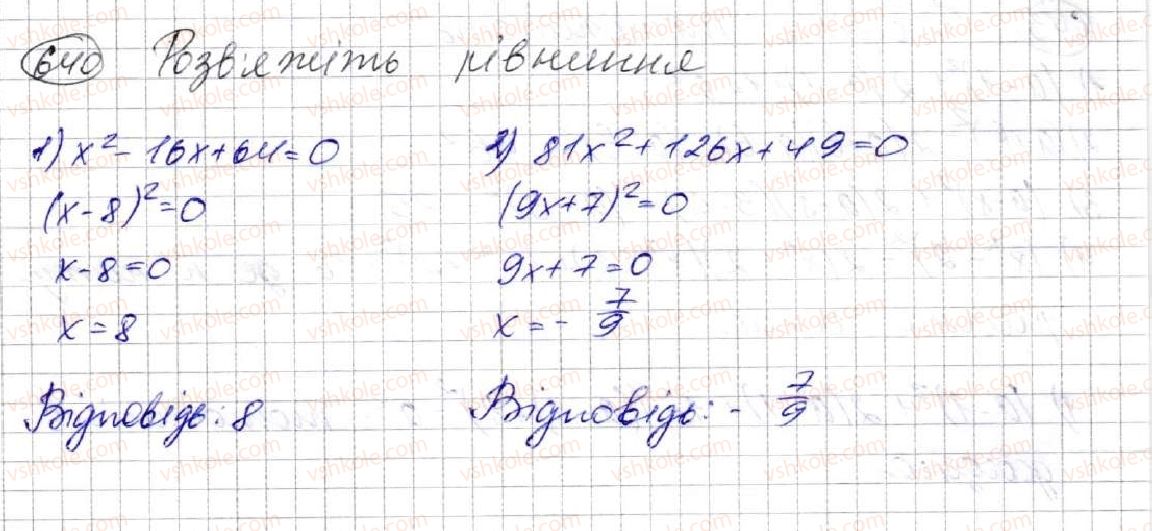 640 Розв'яжіть рівняння
1) x² - 16x + 64 = 0
(x - 8)² = 0
x - 8 = 0
x = 8
Відповідь: 8
2) 81x² + 126x + 49 = 0
(9x + 7)² = 0
9x + 7 = 0
x = - 7/9
Відповідь: - 7/9